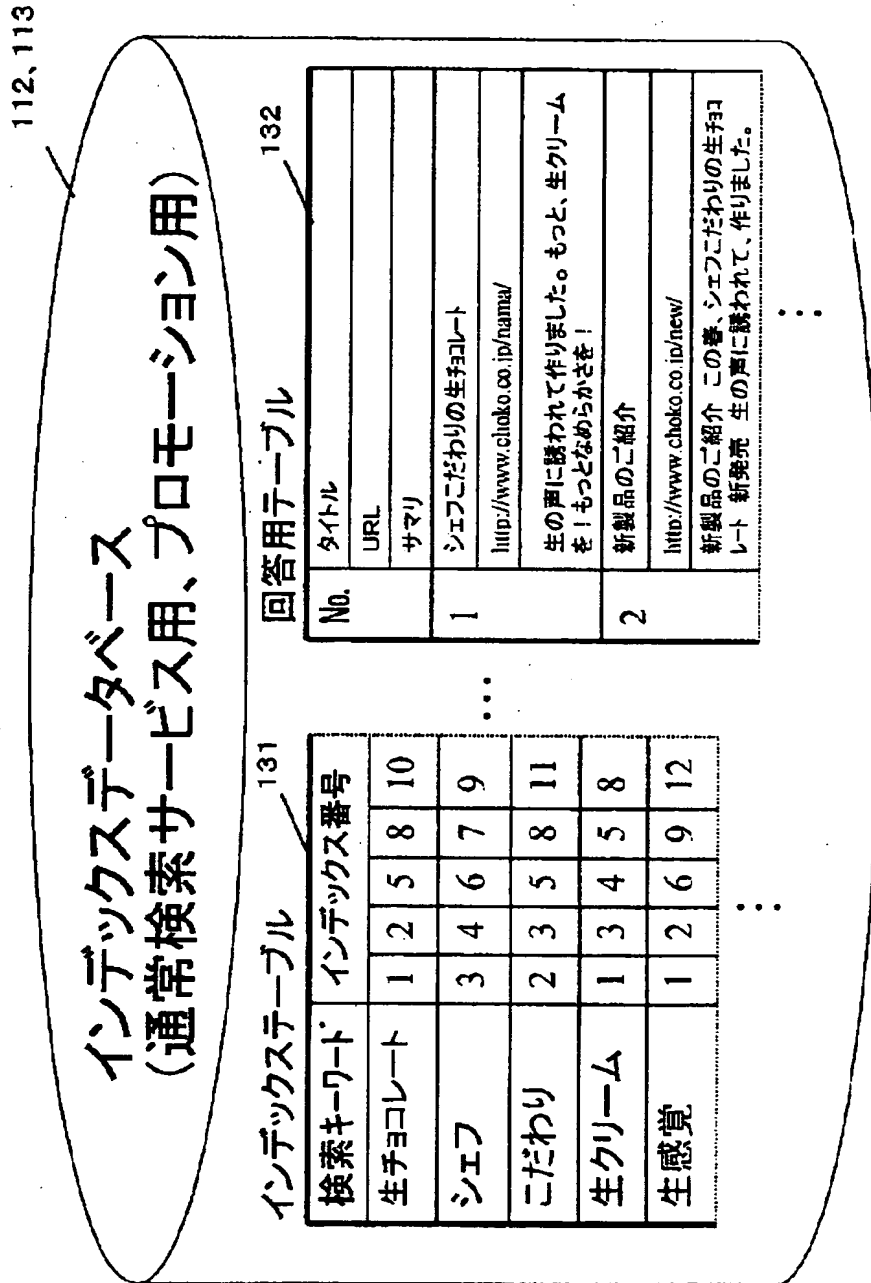 112、113
インデックスデータベース
(通常検索サービス用、プロモーション用)
インデックステーブル
131
検索キーワード インデックス番号
生チョコレート 1 2 5 8 10
シェフ 3 4 6 7 9
こだわり 2 3 5 8 11
生クリーム 1 3 4 5 8
生感覚 1 2 6 9 12
回答用テーブル
132
No. タイトル
URL
サマリ
1 シェフこだわりの生チョコレート
http://www.choko.co.jp/nama/
生の声に誘われて作りました。もっと、生クリーム
を！もっとなめらかさを！
2 新製品のご紹介
http://www.choko.co.jp/new/
新製品のご紹介 この春、シェフこだわりの生チョコ
レート 新発売 生の声に誘われて、作りました。